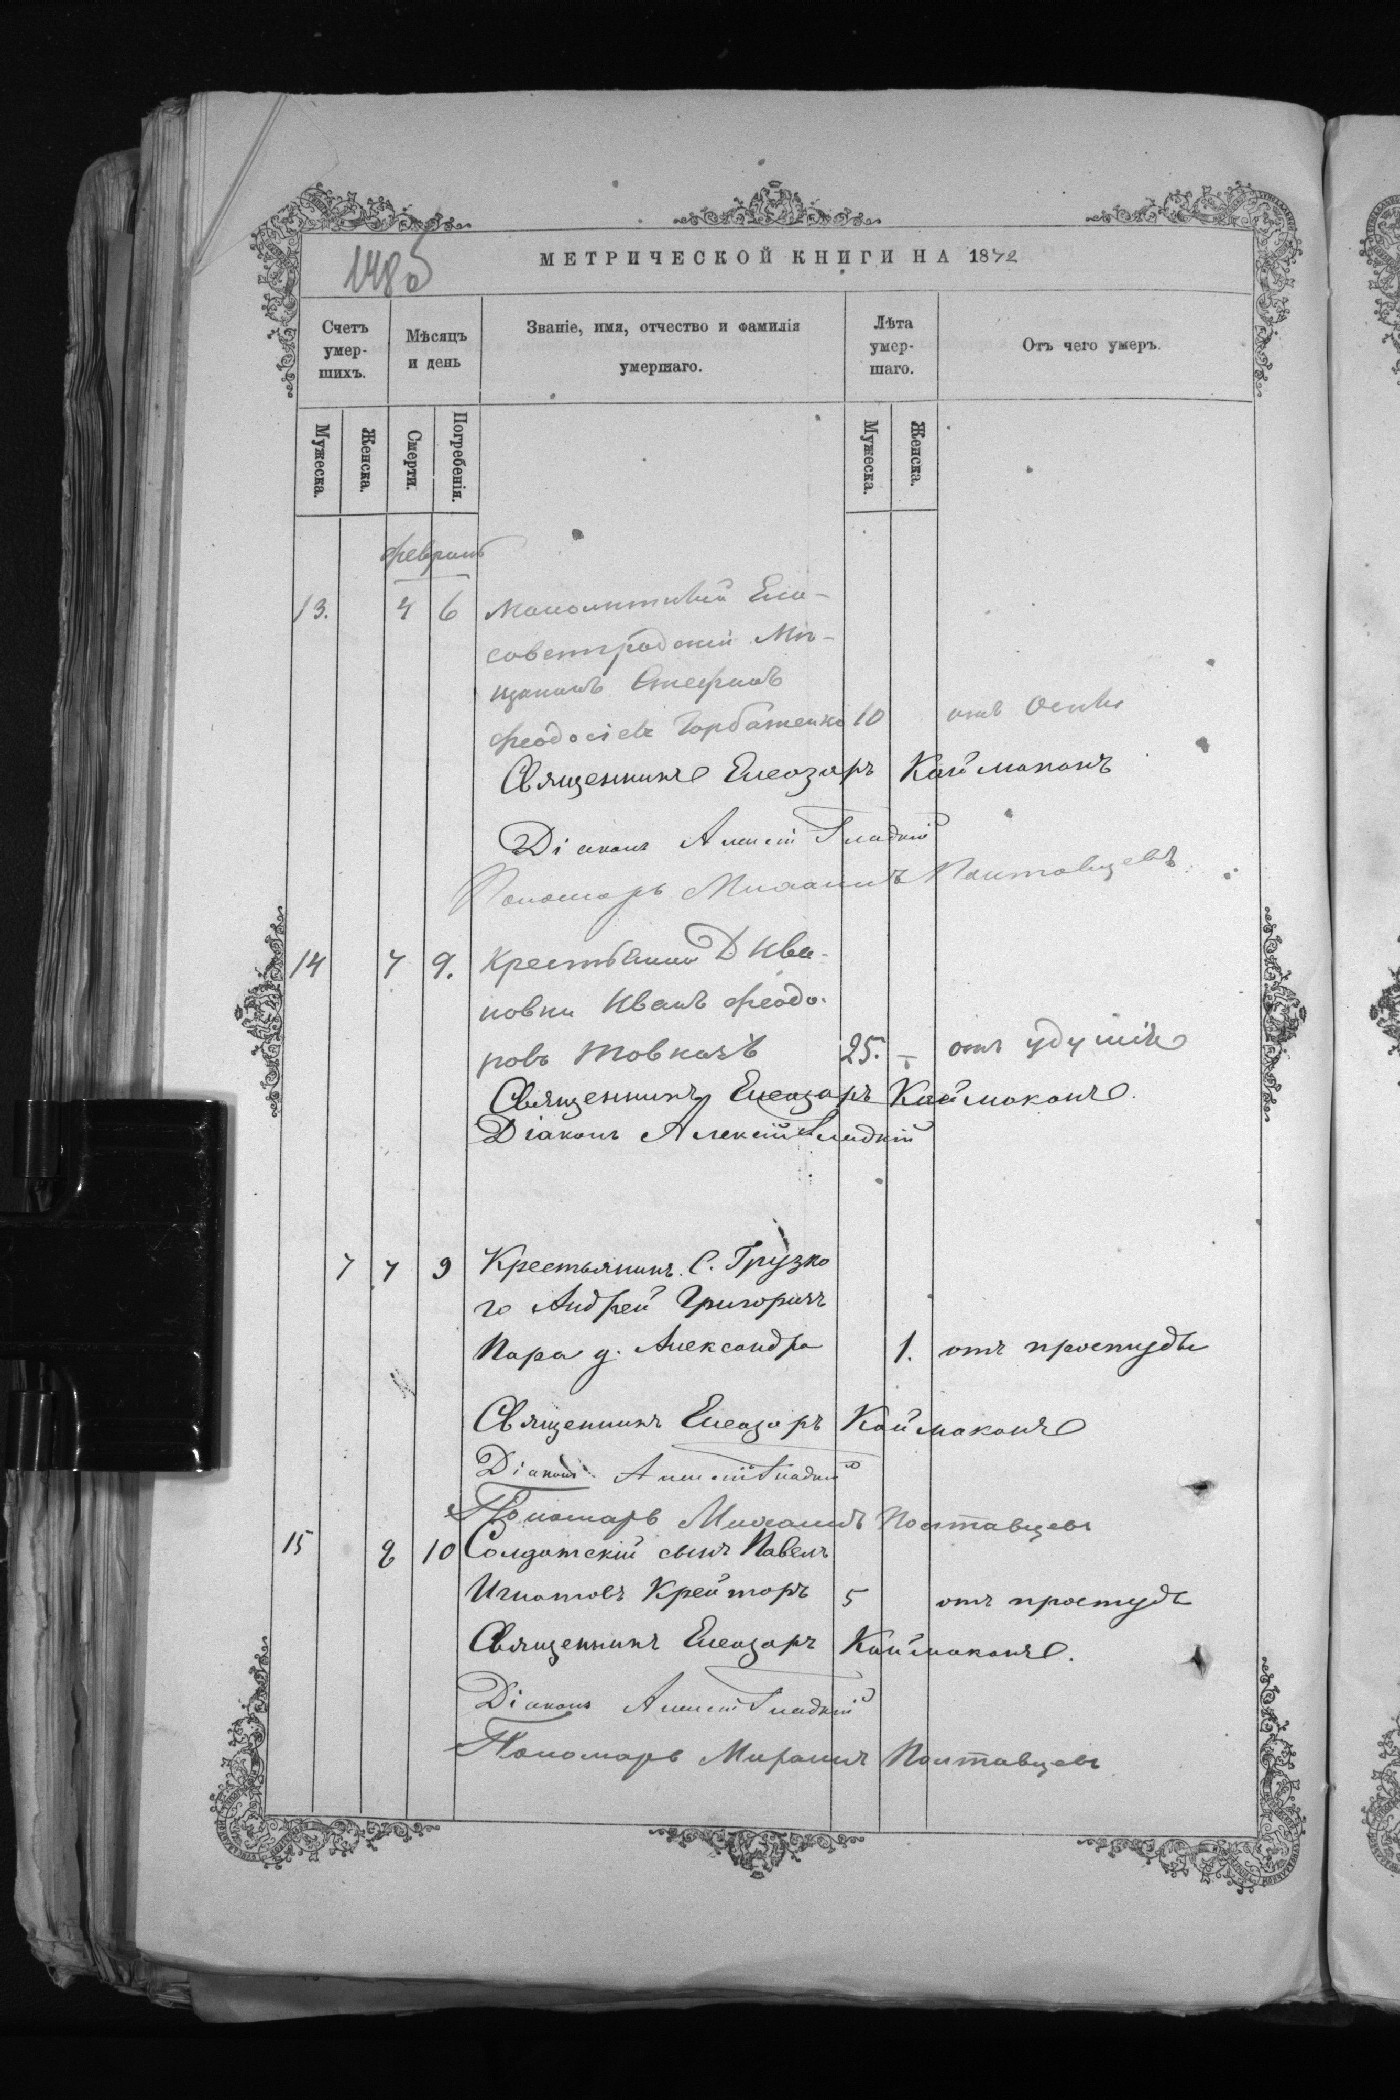 148об
МЕТРИЧЕСКОЙ КНИГИ НА 1872
Счетъ умер- шихъ.
Мѣсяцъ и день
Званіе, имя, отчество и фамилія умершаго.
Лѣта умер- шаго.
Отъ чего умеръ.
Мужеска.
Женска.
Смерти.
Погребенія.
Мужеска.
Женска.
февраль
13. 4 6 Малолитній Ели-
саветградскій Мѣ-
щанинъ Стефанъ
Феодосіевъ Горбатенко 10 отъ Оспы
Священникъ Елеазаръ Каймаканъ
Діаконъ Алексій Гладкій
Пономарь Михаилъ Полтавцевъ
14 7 9. Крестьянинъ Д Ива-
новки Иванъ Феодо-
ровъ Товкачъ 25. отъ удушія
Священникъ Елеазаръ Каймаканъ.
Діаконъ Алексій Гладкій
7 7 9 Крестьянинъ С. Грузко
го Андрей Григорьевъ
Пара д. Александра 1. отъ простуды
Священникъ Елеазаръ Каймаканъ
Діаконъ Алексій Гладкій
Пономарь Михаилъ Полтавцевъ
15 8 10 Солдатскій сынъ Павелъ
Игнатовъ Крейторъ 5 отъ простуды
Священникъ Елеазаръ Каймаканъ.
Діаконъ Алексій Гладкій
Пономарь Михаилъ Полтавцевъ